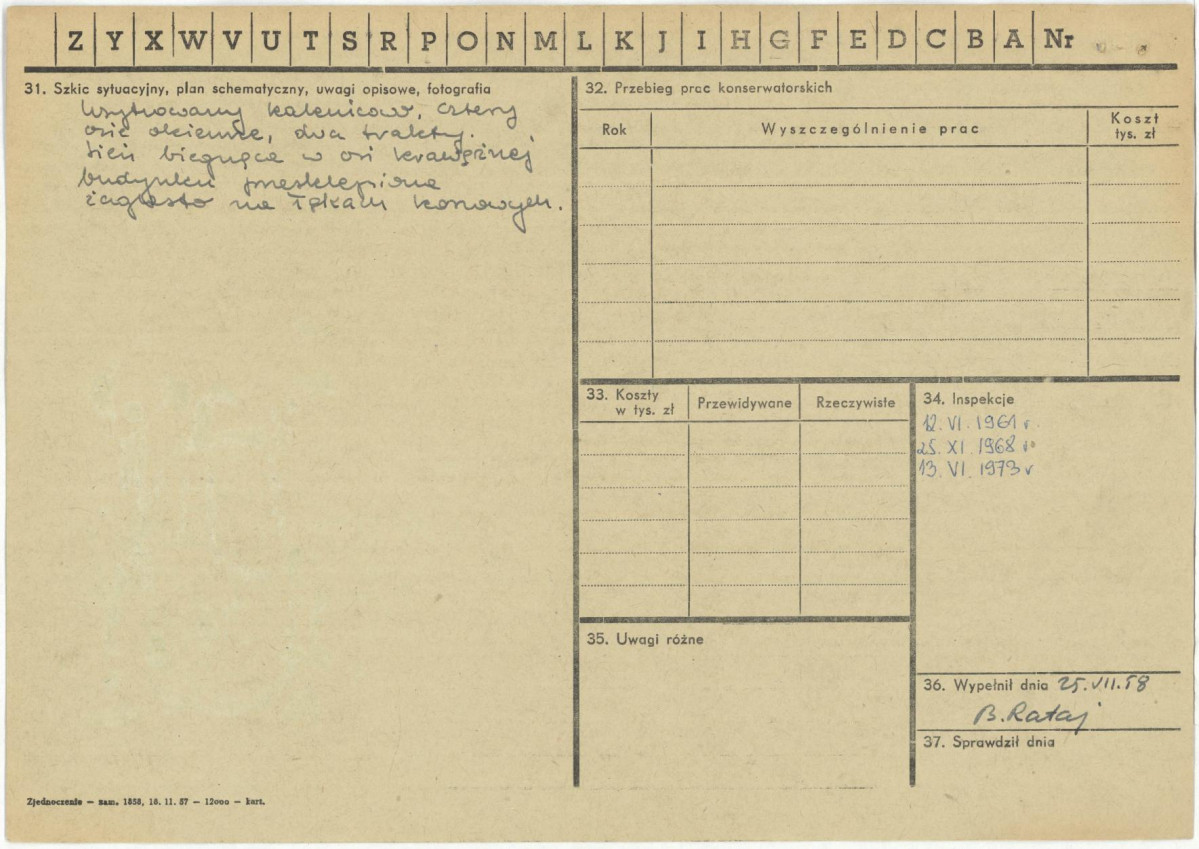 Z Y X W V U T S R P O N M L K J I H G F E D C B A Nr
31. Szkic sytuacyjny, plan schematyczny, uwagi opisowe, fotografia
Usytuowany kalenicowo, cztery
osie okienne, dwa trakty.
Sień biegnąca w osi
budynku przesklepiona
żaglasto na łękach
32. Przebieg prac konserwatorskich
Rok Wyszczególnienie prac Koszt tys. zł
33. Koszty w tys. zł Przewidywane Rzeczywiste
34. Inspekcje
12. VI. 1961 r.
25. XI. 1968 r.
13. VI. 1973 r
35. Uwagi różne
36. Wypełnił dnia 25. VII. 58
B. Rataj
37. Sprawdził dnia
Zjednoczenie — zam. 1858, 18. 11. 57 — 12000 — kart.